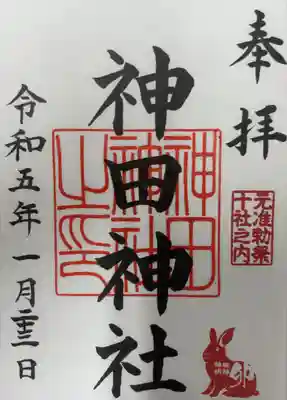 奉拝
元准勅祭
十社之内
神田神社
神田
神社
之印
卯
令和五年一月二十三日